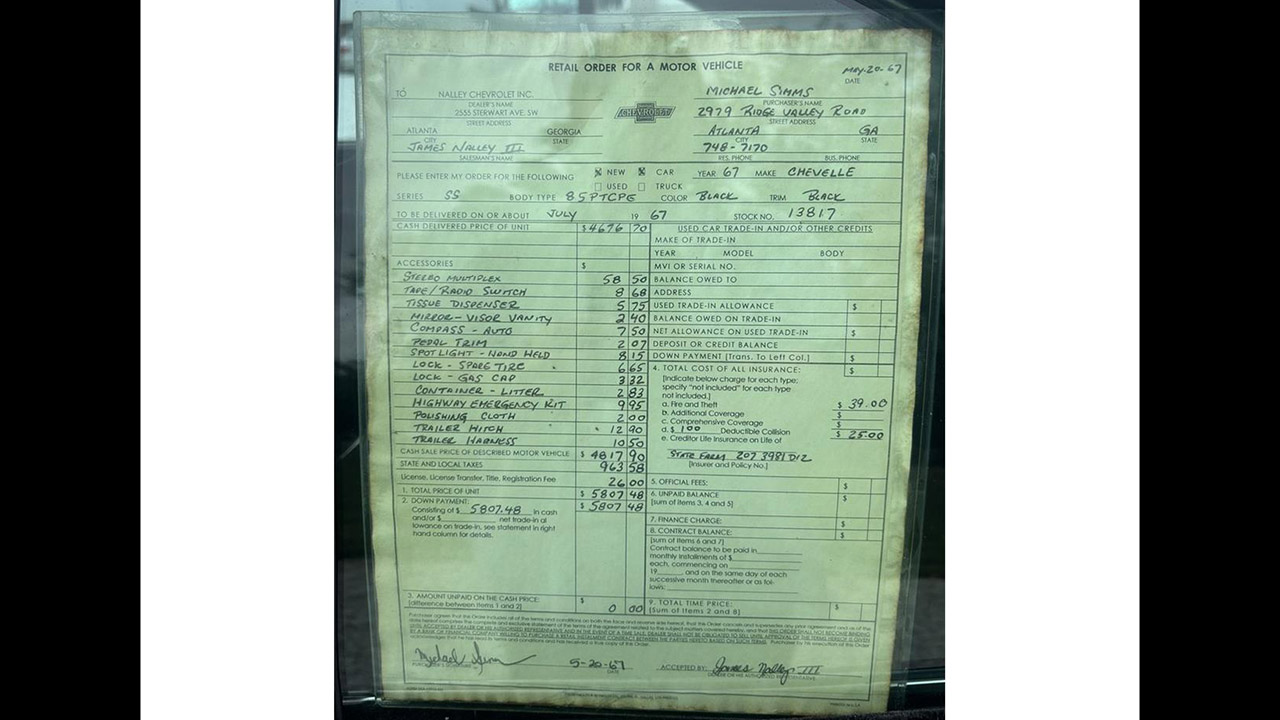 RETAIL ORDER FOR A MOTOR VEHICLE
MAY-20-67
DATE
TO NALLEY CHEVROLET INC.
DEALER'S NAME
2555 STERWART AVE. SW
STREET ADDRESS
ATLANTA GEORGIA
CITY STATE
JAMES NALLEY III
SALESMAN'S NAME
CHEVROLET
MICHAEL SIMMS
PURCHASER'S NAME
2979 RIDGE VALLEY ROAD
STREET ADDRESS
ATLANTA GA
CITY STATE
748-7170
RES. PHONE BUS. PHONE
PLEASE ENTER MY ORDER FOR THE FOLLOWING NEW CAR YEAR 67 MAKE CHEVELLE
USED TRUCK
SERIES SS BODY TYPE 85PTCPE COLOR BLACK TRIM BLACK
TO BE DELIVERED ON OR ABOUT JULY 19 67 STOCK NO. 13817
CASH DELIVERED PRICE OF UNIT $4676 70
ACCESSORIES $
STEREO MULTIPLEX 58 50
TAPE/RADIO SWITCH 8 68
TISSUE DISPENSER 5 75
MIRROR-VISOR VANITY 2 40
COMPASS - AUTO 7 50
PEDAL TRIM 2 07
SPOTLIGHT - HAND HELD 8 15
LOCK - SPARE TIRE 6 65
LOCK - GAS CAP 3 32
CONTAINER - LITTER 2 83
HIGHWAY EMERGENCY KIT 9 95
POLISHING CLOTH 2 00
TRAILER HITCH 12 90
TRAILER HARNESS 10 50
CASH SALE PRICE OF DESCRIBED MOTOR VEHICLE $ 4817 90
STATE AND LOCAL TAXES 963 58
License, License Transfer, Title, Registration Fee 26 00
1. TOTAL PRICE OF UNIT $ 5807 48
2. DOWN PAYMENT: $ 5807 48
Consisting of $ 5807.48 in cash
and/or $ net trade-in al
lowance on trade-in, see statement in right
hand column for details.
3. AMOUNT UNPAID ON THE CASH PRICE: $
[difference between Items 1 and 2] 0 00
USED CAR TRADE-IN AND/OR OTHER CREDITS
MAKE OF TRADE-IN
YEAR MODEL BODY
MVI OR SERIAL NO.
BALANCE OWED TO
ADDRESS
USED TRADE-IN ALLOWANCE $
BALANCE OWED ON TRADE-IN
NET ALLOWANCE ON USED TRADE-IN $
DEPOSIT OR CREDIT BALANCE
DOWN PAYMENT [Trans. To Left Col.] $
4. TOTAL COST OF ALL INSURANCE: $
[Indicate below charge for each type;
specify "not included" for each type
not included.]
a. Fire and Theft $ 39.00
b. Additional Coverage $
c. Comprehensive Coverage $
d. $ 100 Deductible Collision $ 25.00
e. Creditor Life Insurance on Life of
STATE FARM 207 3981 D12
[Insurer and Policy No.]
5. OFFICIAL FEES: $
6. UNPAID BALANCE $
[sum of items 3, 4 and 5]
7. FINANCE CHARGE: $
8. CONTRACT BALANCE: $
[sum of Items 6 and 7]
Contract balance to be paid in
monthly installments of $
each, commencing on
19 , and on the same day of each
successive month thereafter or as fol-
lows:
9. TOTAL TIME PRICE: $
(Sum of Items 2 and 8]
Michael Simm
PURCHASER'S SIGNATURE
5-20-67
DATE
ACCEPTED BY: James Nalley III
DEALER OR HIS AUTHORIZED REPRESENTATIVE